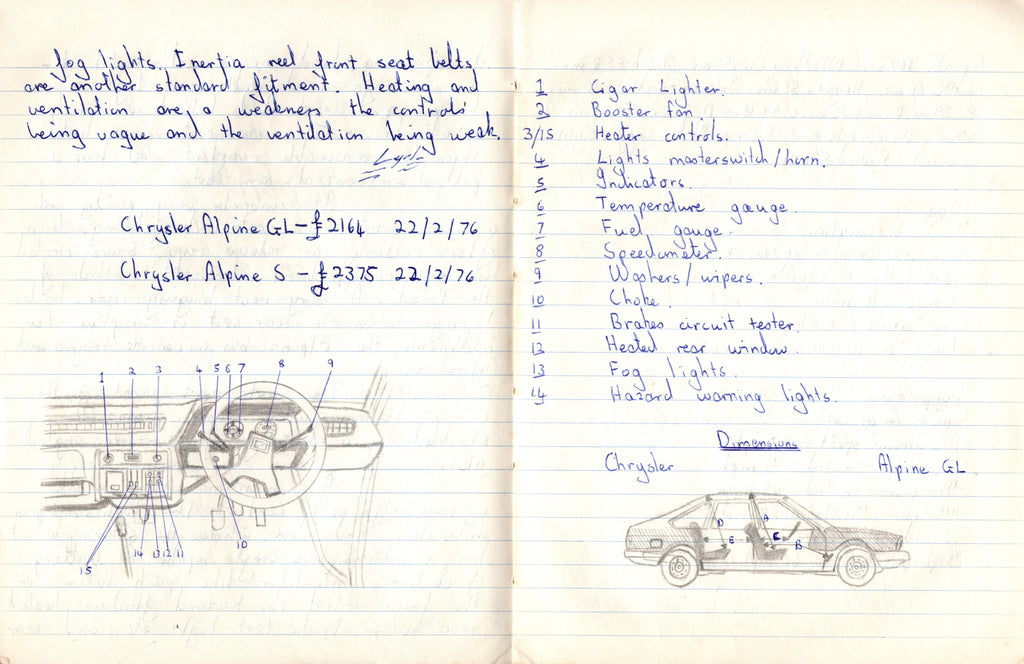 fog lights. Inertia reel front seat belts
are another standard fitment. Heating and
ventilation are a weakness the controls
being vague and the ventilation being weak.
Chrysler Alpine GL - £2164 22/2/76
Chrysler Alpine S - £2375 22/2/76
1 2 3 4 5 6 7 8 9
10
14 13 12 11
15
1 Cigar Lighter.
2 Booster fan.
3/15 Heater controls.
4 Lights masterswitch/horn.
5 Indicators.
6 Temperature gauge.
7 Fuel gauge.
8 Speedometer.
9 Washers/wipers.
10 Choke.
11 Brakes circuit tester.
12 Heated rear window.
13 Fog lights.
14 Hazard warning lights.
Dimensions
Chrysler Alpine GL.
D A
E C B